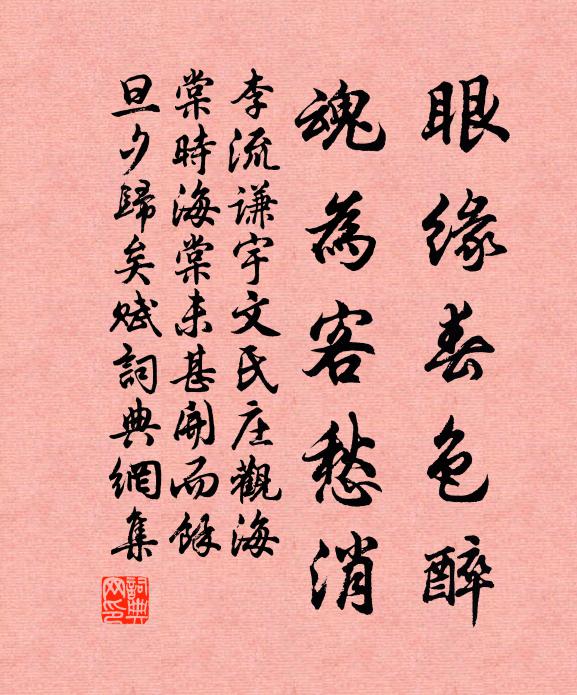 眼緣春色醉
魂為客愁消
李流謙宇文氏庄觀海
棠時海棠未甚開而餘
旦夕歸矣賦詞典網集